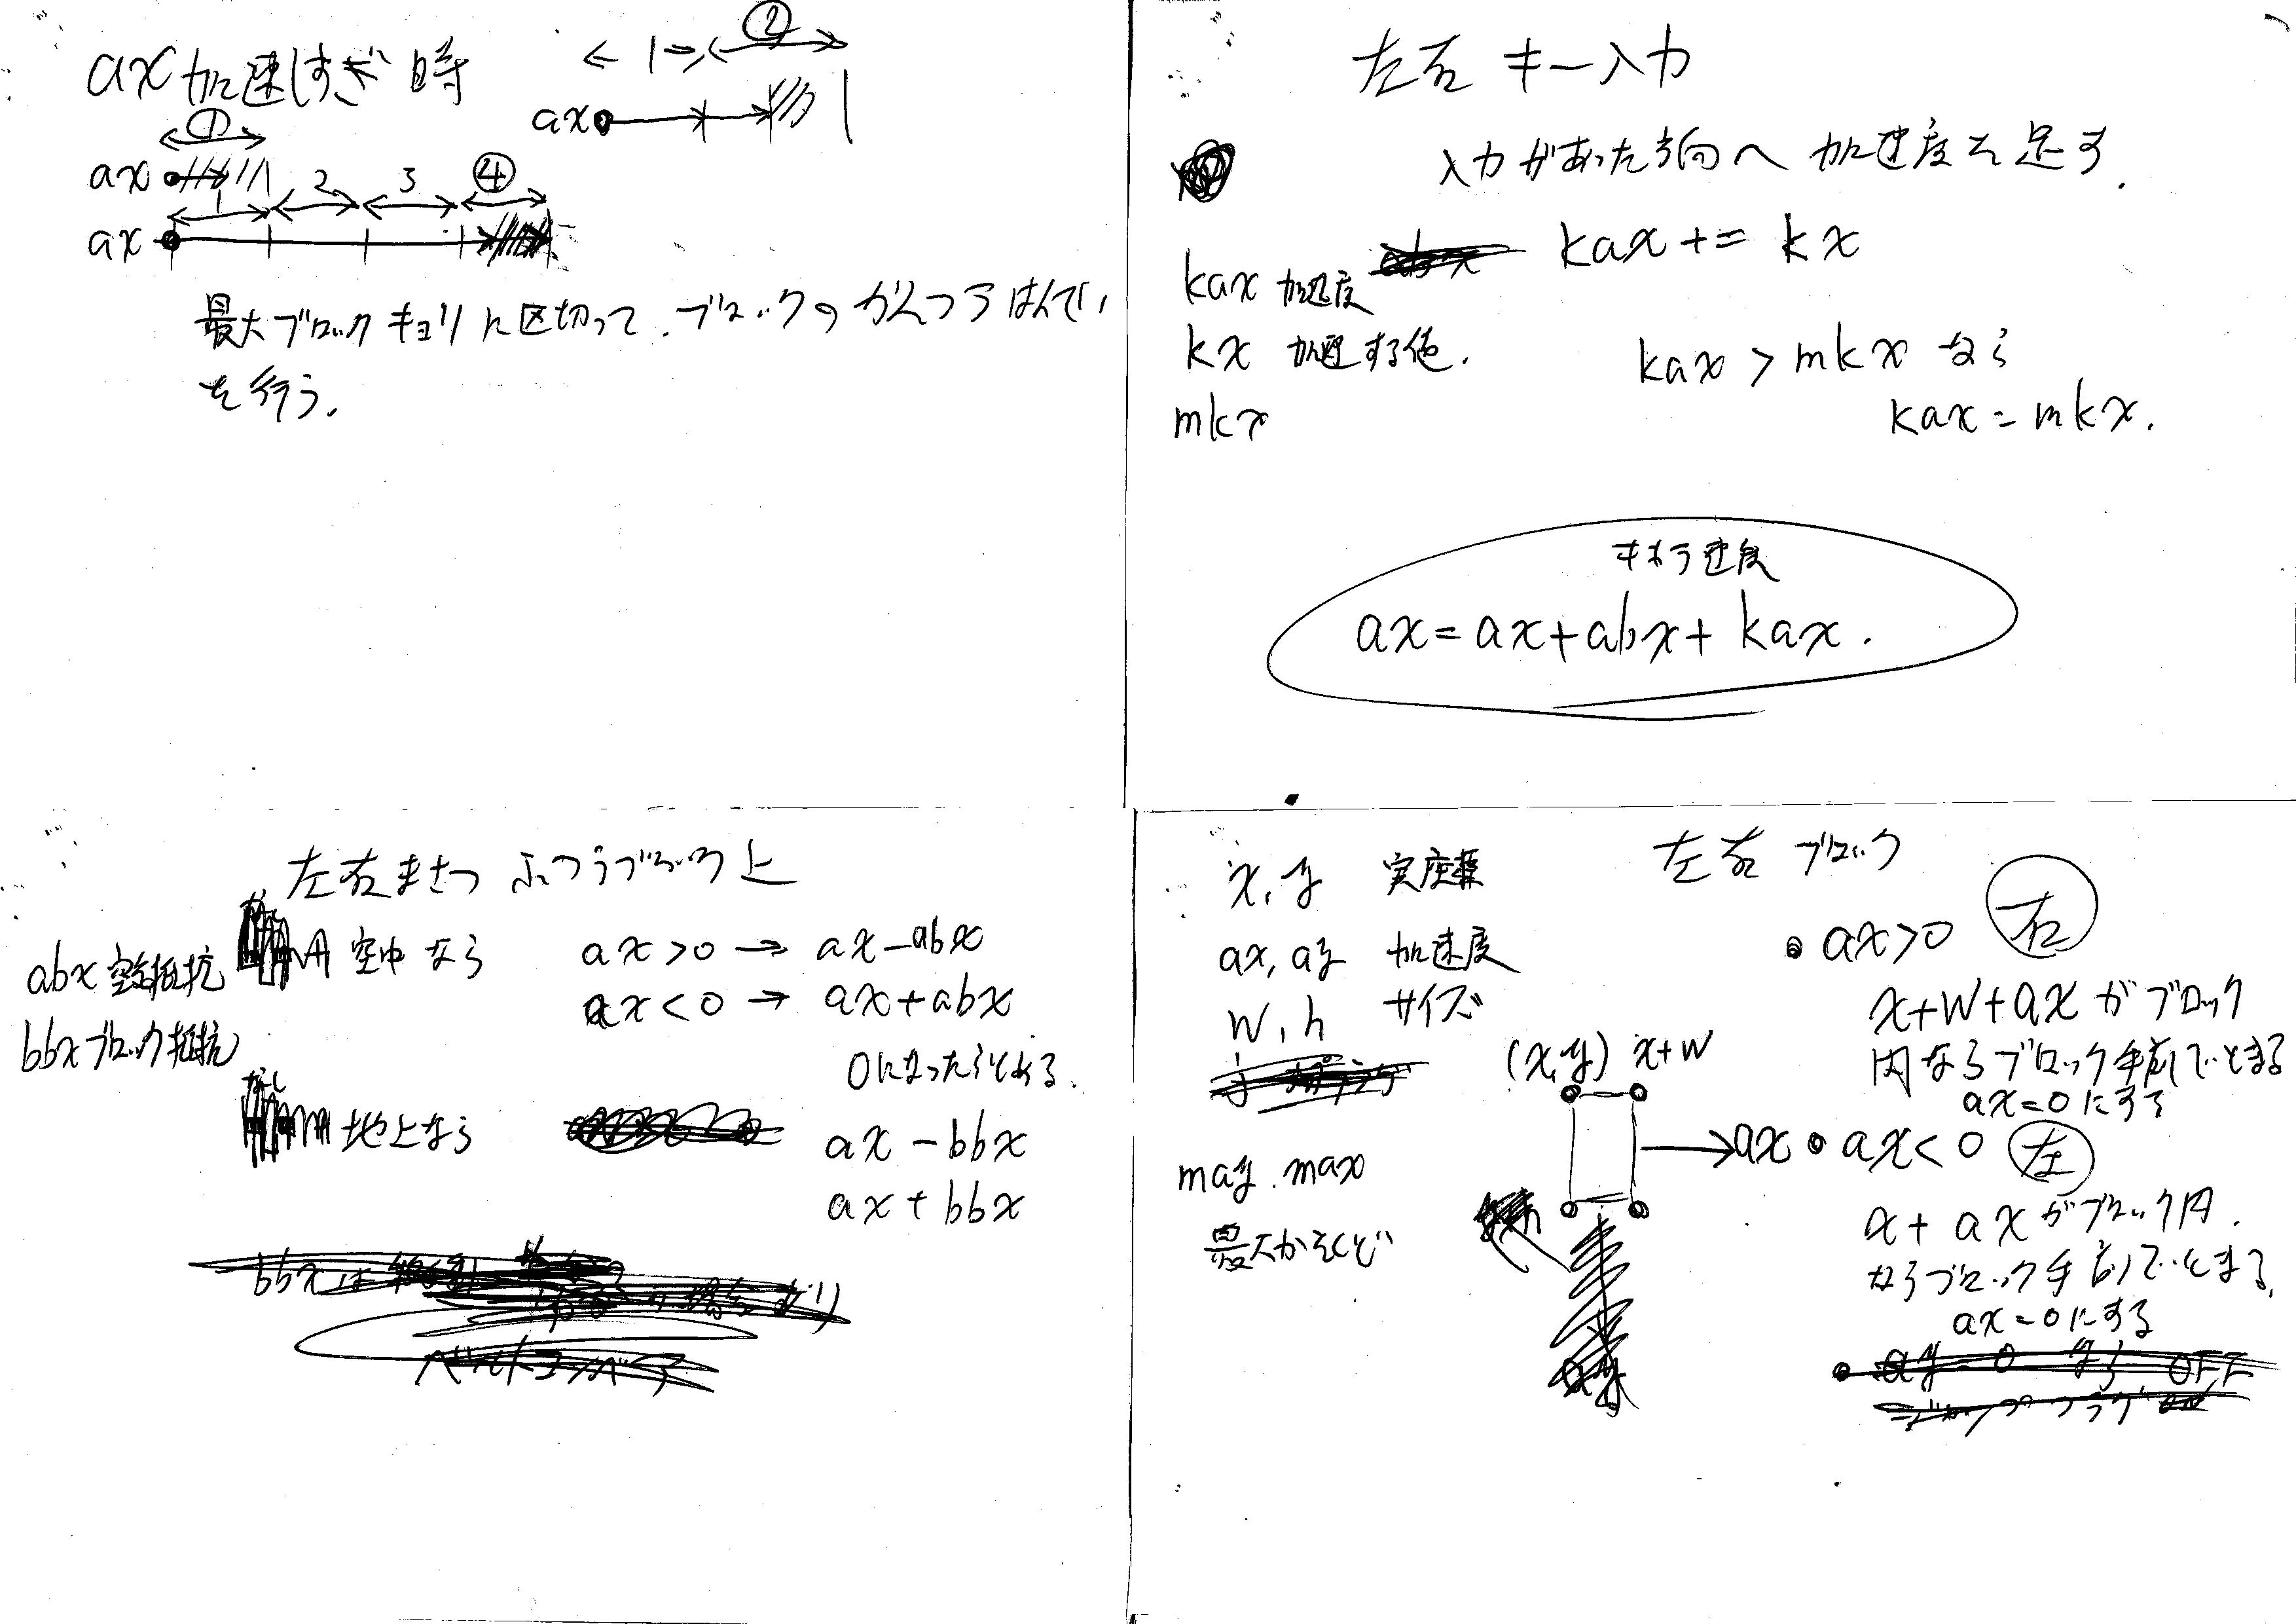 ax加速しすぎ時
← 1 → ②
ax
①
ax
1 2 3 ④
ax
最大ブロックキョリに区切って、ブロックのがんつうはんてい
を行う.
左右 キー入力
入力があった方向へ 加速度を足す.
kax += kx
kax 加速度
kx 加速する値.
mkx
kax > mkx なら
kax = mkx.
速度
ax = ax + abx + kax.
左右まさつ ふつうブロック上
abx 空気抵抗
bbx ブロック抵抗
空中なら
ax > 0 → ax - abx
ax < 0 → ax + abx
0になったらとめる.
地上なら
ax - bbx
ax + bbx
bbxは
ベルトコンベア
左右 ブロック
x, y 実座標
ax, ay 加速度
w, h サイズ
may. max
最大かそくど
(x, y) x+w
ax
• ax>0 右
x+w+ax がブロック
内ならブロック手前でとまる
ax=0にする
• ax<0 左
x+axがブロック内.
ならブロック手前でとまる.
ax=0にする
• ay = 0 なら OFF
ジャンプフラグ